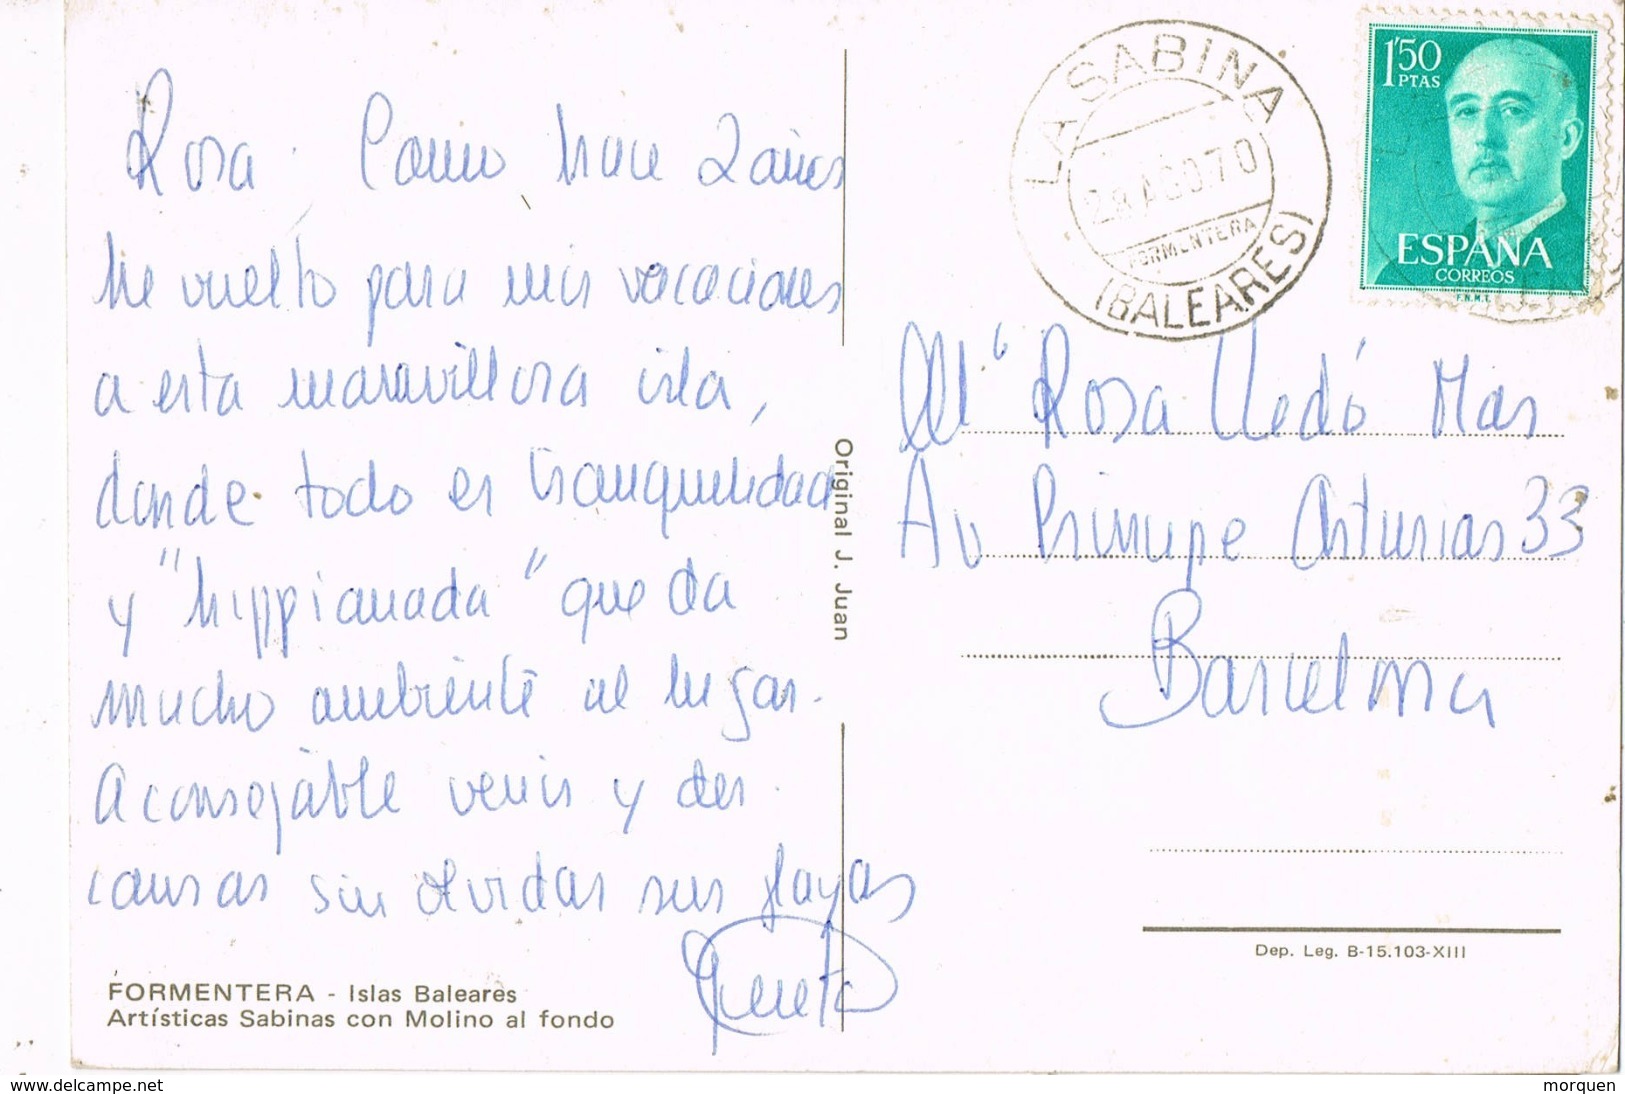 Rosa. Como hace 2 años
he vuelto para mis vacaciones
a esta maravillosa isla,
donde todo es tranquilidad
y "hippianada" que da
mucho ambiente al lugar.
Aconsejable venir y des
cansar sin olvidar sus playas
FORMENTERA - Islas Baleares
Artísticas Sabinas con Molino al fondo
Original J. Juan
LA SABINA
28 AGO. 70
FORMENTERA
(BALEARES)
1'50
PTAS
ESPAÑA
CORREOS
F.N.M.T.
Mª Rosa Lledó Mas
Av Principe Asturias 33
Barcelona
Dep. Leg. B-15.103-XIII
www.delcampe.net
morquen